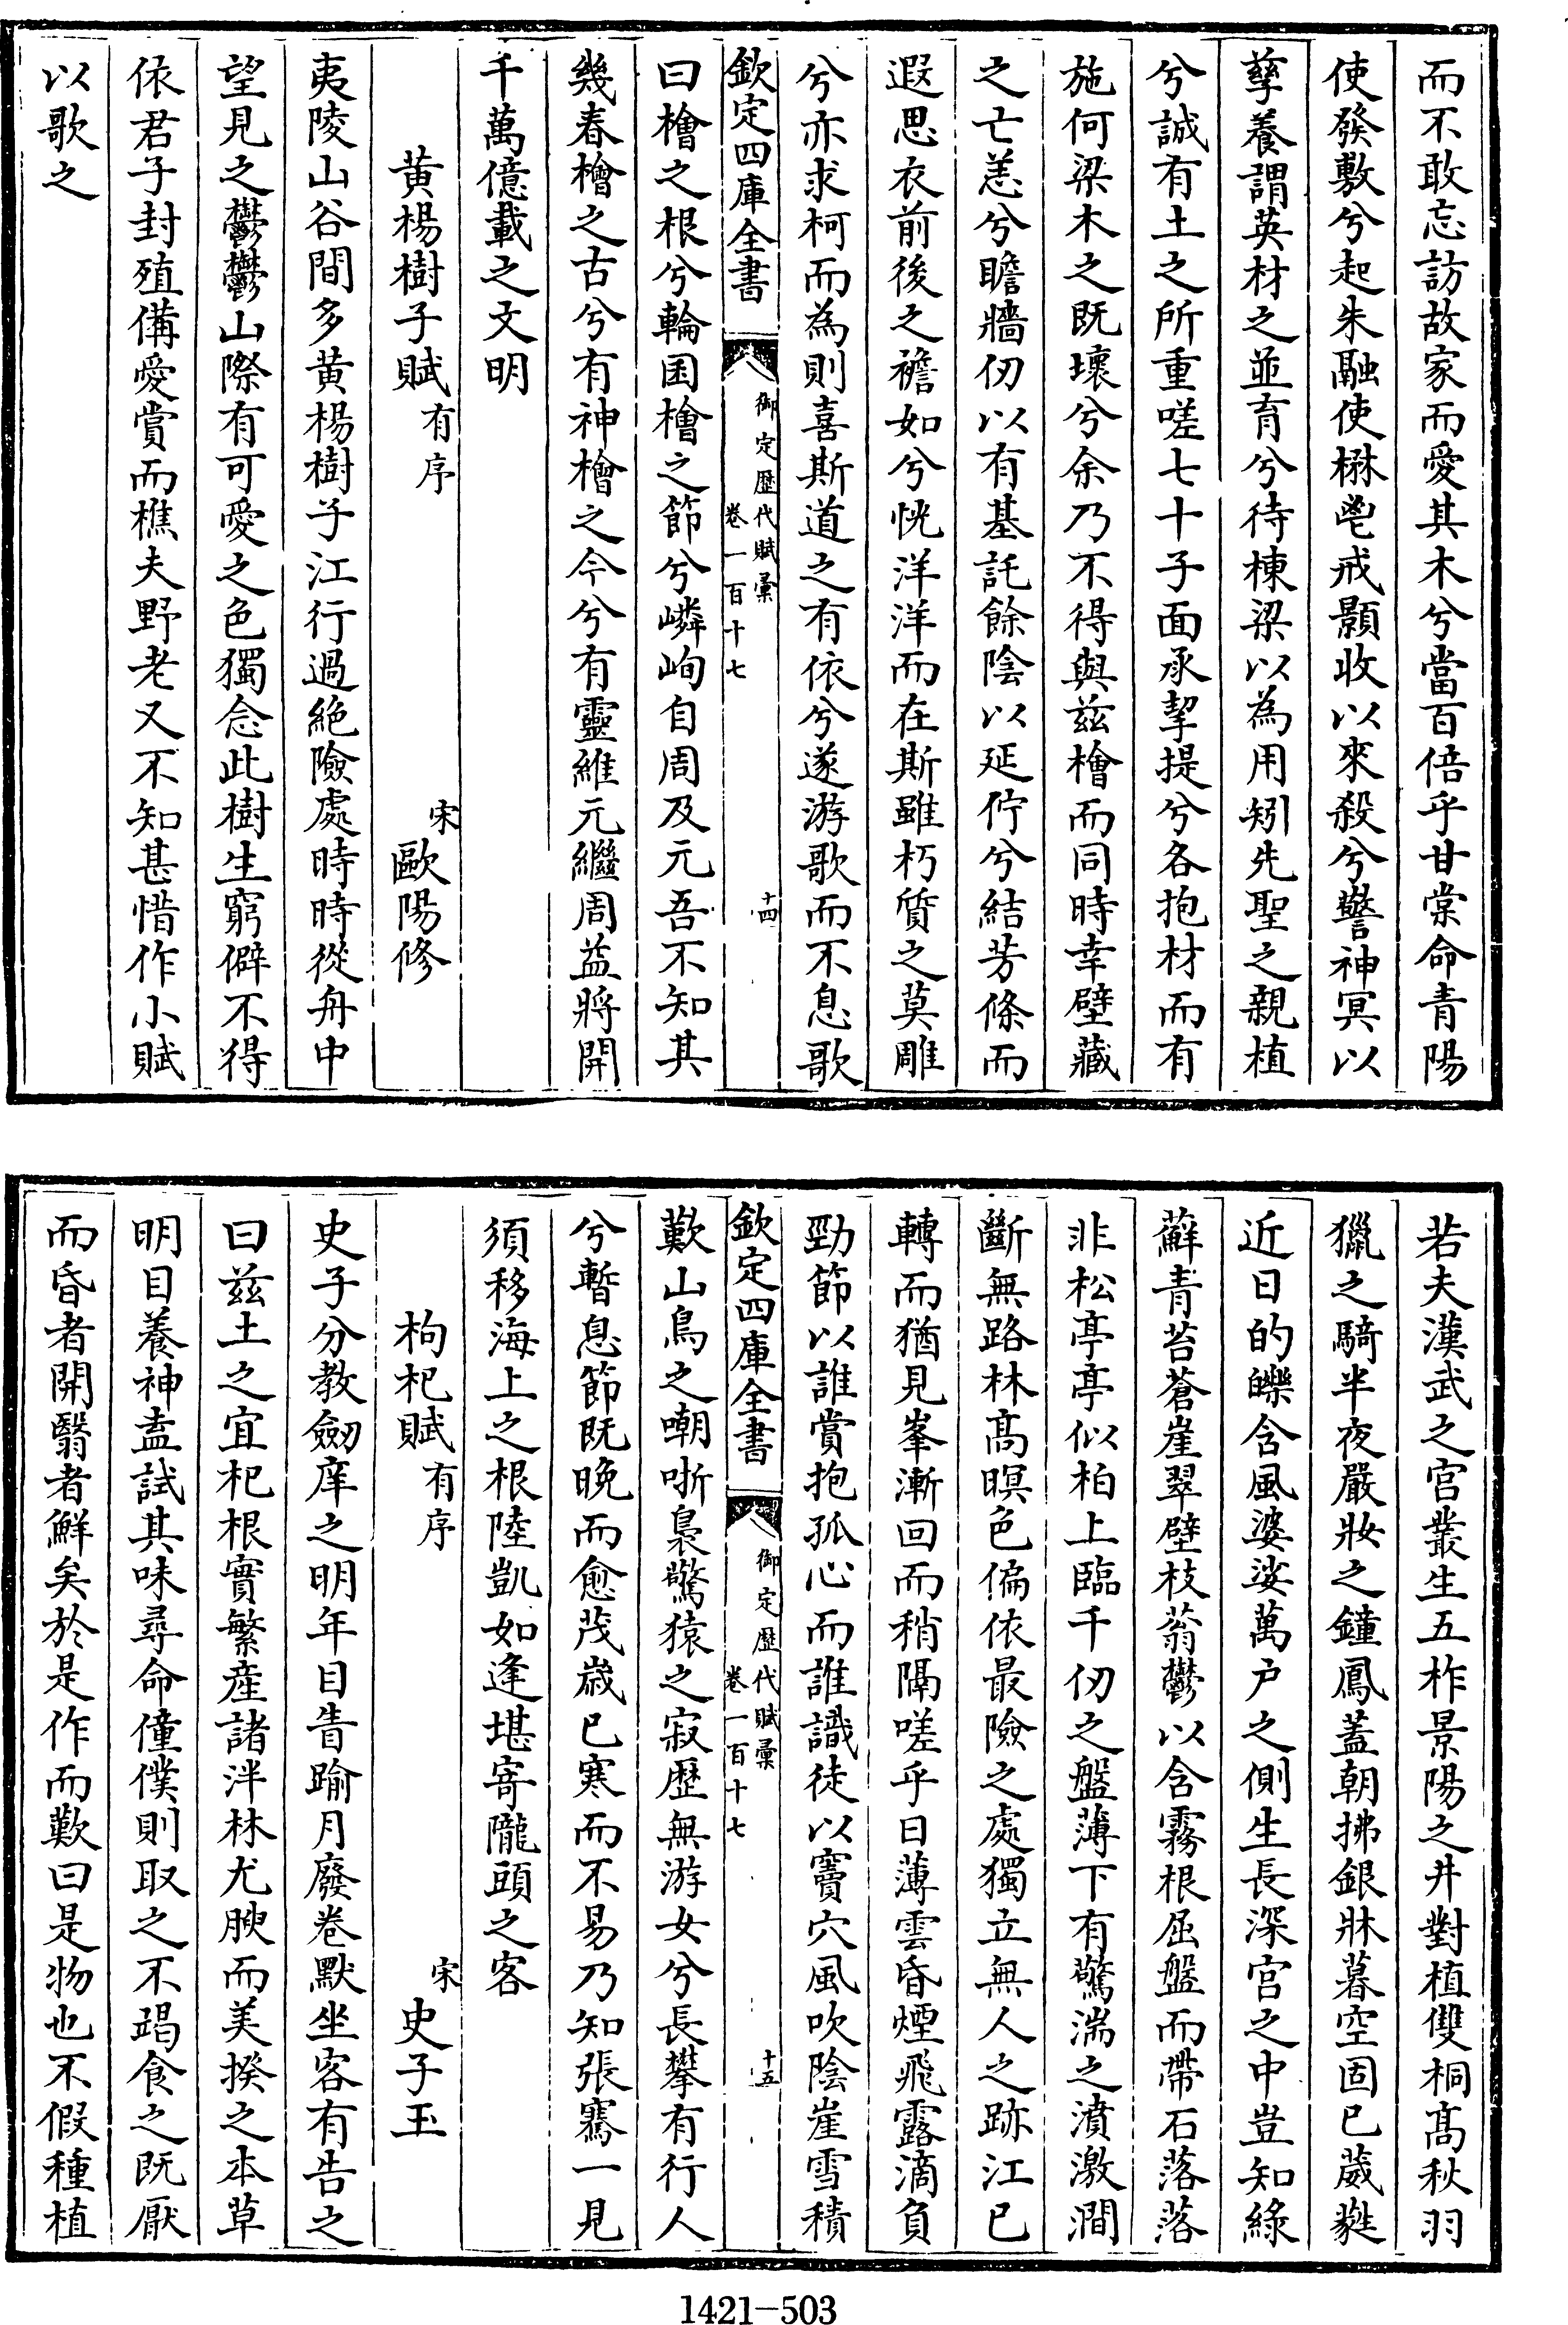 而不敢忘訪故家而愛其木兮當百倍乎甘棠命青陽
使發敷兮起朱融使楙鬯戒顥收以來殺兮警神冥以
孳養謂英材之並育兮待棟梁以為用矧先聖之親植
兮誠有土之所重嗟七十子面承挈提兮各抱材而有
施何梁木之既壞兮余乃不得與兹檜而同時幸壁藏
之亡恙兮瞻牆仞以有基託餘陰以延佇兮結芳條而
遐思衣前後之襜如兮恍洋洋而在斯雖朽質之莫雕
兮亦求柯而為則喜斯道之有依兮遂游歌而不息歌
欽定四庫全書
御定歷代賦彙
卷一百十七
十四
曰檜之根兮輪囷檜之節兮嶙峋自周及元吾不知其
幾春檜之古兮有神檜之今兮有靈維元繼周益將開
千萬億載之文明
黄楊樹子賦有序 宋歐陽修
夷陵山谷間多黄楊樹子江行過絶險處時時從舟中
望見之鬱鬱山際有可愛之色獨念此樹生窮僻不得
依君子封殖備愛賞而樵夫野老又不知甚惜作小賦
以歌之
若夫漢武之宫叢生五柞景陽之井對植雙桐髙秋羽
獵之騎半夜嚴妝之鐘鳳蓋朝拂銀牀暮空固已葳蕤
近日的皪含風婆娑萬户之側生長深宫之中豈知緑
蘚青苔蒼崖翠壁枝蓊鬱以含霧根屈盤而帶石落落
非松亭亭似柏上臨千仞之盤薄下有驚湍之濆激澗
斷無路林髙暝色偏依最險之處獨立無人之跡江已
轉而猶見峯漸回而稍隔嗟乎日薄雲昏煙飛露滴負
勁節以誰賞抱孤心而誰識徒以竇穴風吹陰崖雪積
欽定四庫全書
御定歷代賦彙
卷一百十七
十五
歎山鳥之嘲哳裊驚猿之寂歴無游女兮長攀有行人
兮暫息節既晚而愈茂嵗已寒而不易乃知張騫一見
須移海上之根陸凱如逢堪寄隴頭之客
枸杞賦有序 宋史子玉
史子分教劒庠之明年目眚踰月廢卷默坐客有告之
曰兹土之宜杞根實繁産諸泮林尤腴而美揆之本草
明目養神盍試其味尋命僮僕則取之不竭食之既厭
而昏者開翳者鮮矣於是作而歎曰是物也不假種植
1421-503